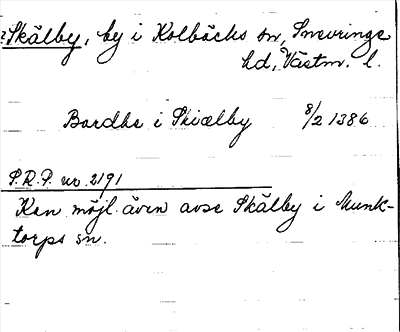 ?Skälby, by i Kolbäcks sn, Snevringe
hd, Västm. l.
Bardhe i Skiælby 8/2 1386
S.R.P. nr 2191
Kan möjl. även avse Skälby i Munk-
torps sn.